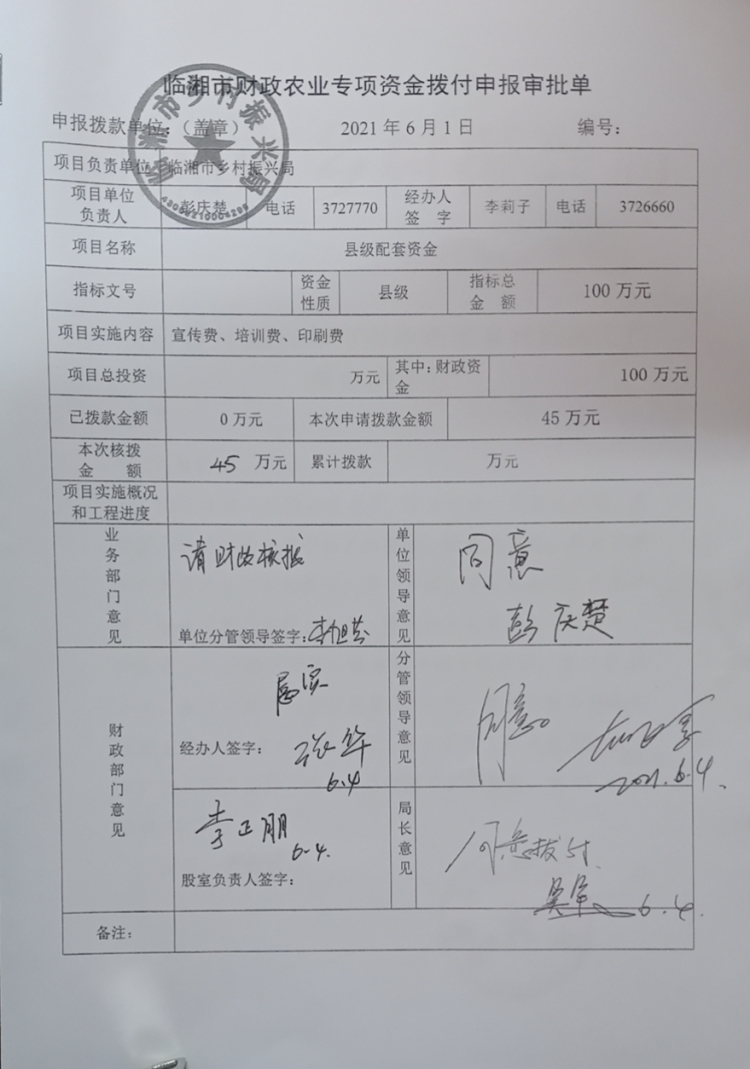 临湘市财政农业专项资金拨付申报审批单
临湘市乡村振兴局
申报拨款单位：（盖章） 2021 年 6 月 1 日 编号：
项目负责单位 临湘市乡村振兴局
项目单位
负责人 彭庆楚 电话 3727770 经办人
签 字 李莉子 电话 3726660
项目名称 县级配套资金
指标文号 资金
性质 县级 指标总
金 额 100 万元
项目实施内容 宣传费、培训费、印刷费
项目总投资 万元 其中：财政资
金 100 万元
已拨款金额 0 万元 本次申请拨款金额 45 万元
本次核拨
金 额 45 万元 累计拨款 万元
项目实施概况
和工程进度
业务部门意见 请财政核拨
单位分管领导签字：
单位领导意见 同意
彭庆楚
财政部门意见
属实
经办人签字： 张华
6.4
分管领导意见 同意
2021.6.4.
李正朋
6.4.
股室负责人签字：
局长意见 同意拨付
6.4.
备注：